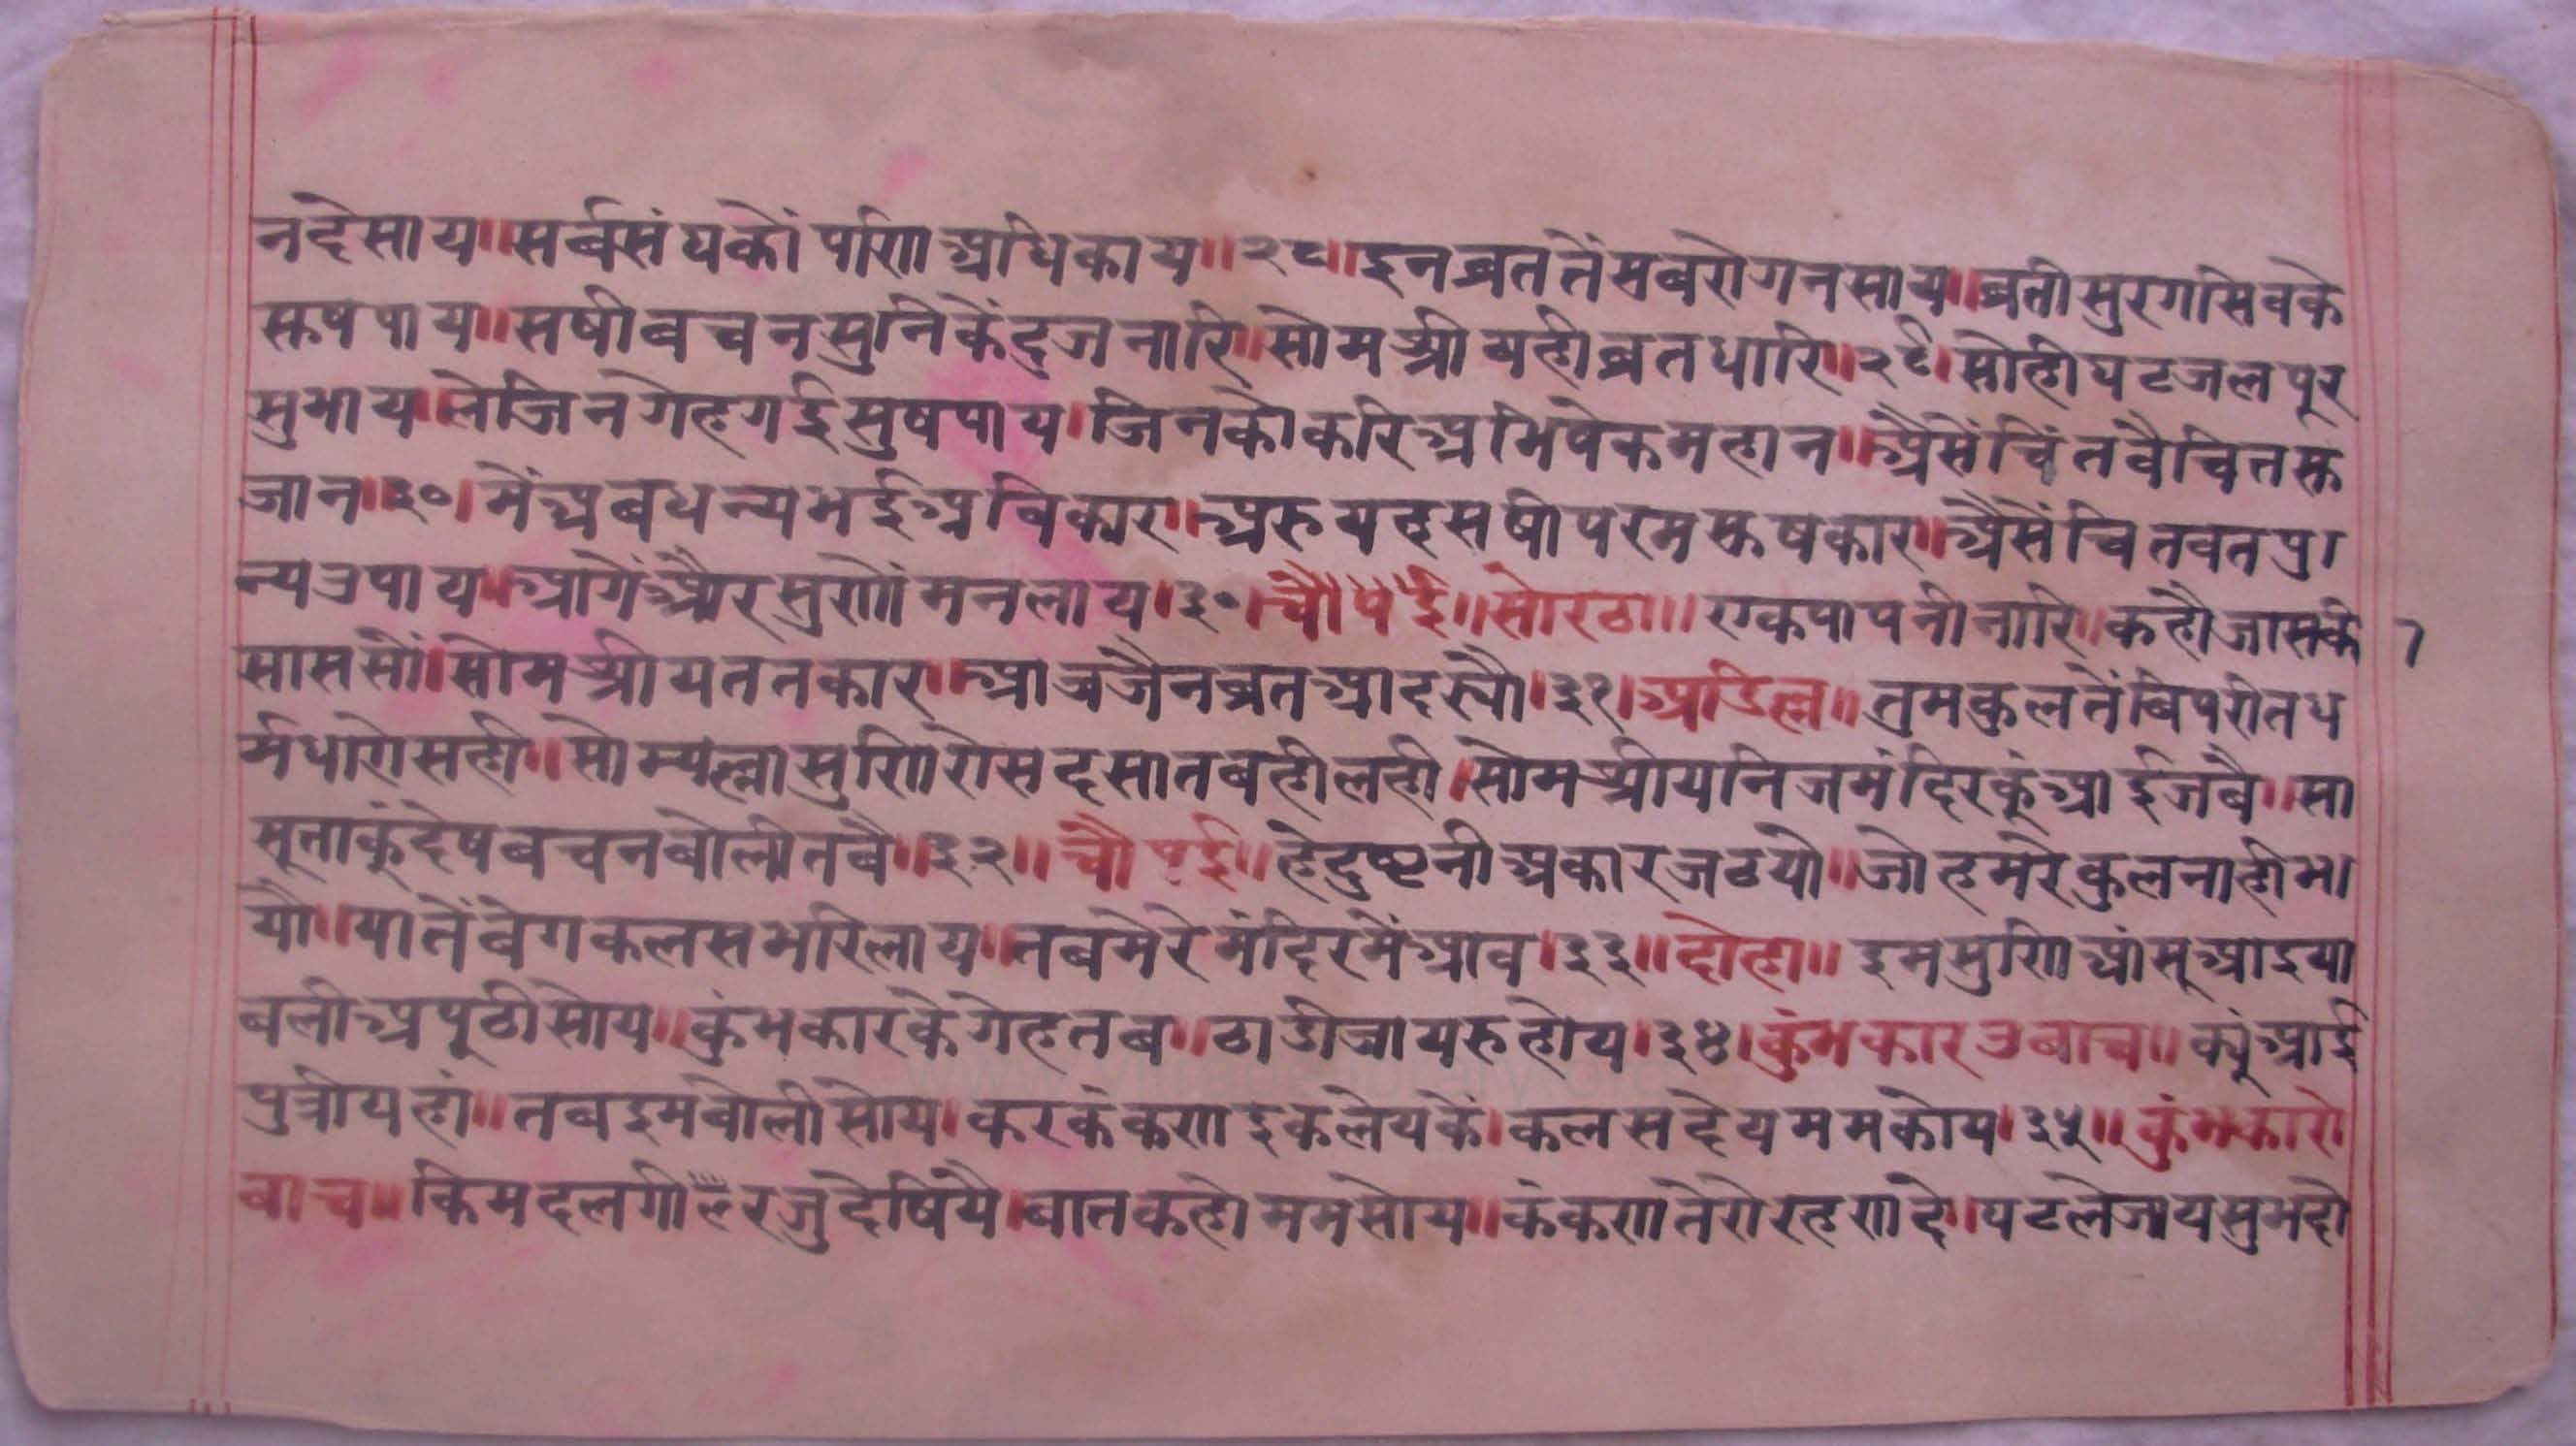 नदेसाय॥सर्बसंघकों पणि अधिकाय॥२८॥इनब्रततेंसबरोगनसाय॥ब्रतीसुरगसिवके
सुषपाय॥सषीबचनसुनिकैंदुजनारि॥सोमश्रीयहीब्रतधारि॥२९।सोहीघटजलपूर
सुभाय॥लेजिनगेहगईसुषपाय।जिनकोकरिअभिषेकमहान॥अैसेंचिंतवैचितसु
जान॥३०।मैंअबधन्यभईअविकार॥अरुयहसषीपरमसुषकार॥अैसेंचितवतपु
न्यउपाय॥आगेंओरसुणोंमनलाय।३०।चौपई॥सोरठा॥एकपापनीनारि॥कहौजासुकी
साससौं॥सोमश्रीयततकार॥आजजैनब्रतआदर्यौ।३१।अडिल्ल॥तुमकुलतेंबिपरीतध
र्मधारोसही॥सोम्यल्लासुणिरोसदसातबहीलही।सोमश्रीयनिजमंदिरकूंआईजबै॥सा
सूताकूंदेषबचनबोलीतबै॥३२॥चौपई॥हेदुष्टनीअकारजठयो॥जोहमरेकुलनाहीभा
यौ॥यातेंबेगकलसभरिलाय॥तबमेरेमंदिरमैंआव।३३॥दोहा॥इमसुणिआंसूआइया
बलीअपूठीसोय॥कुंभकारकेगेहतब॥ठाडीजायरुहोय।३४।कुंभकारउबाच॥क्यूंआई
पुत्रीयहां॥तबइमबोलीसोय।करकंकणइकलेयकें।कलसदेयममकोय।३५॥कुंभकारो
बाच॥किमदलगीररजुदेषियै।बातकहोममसोय॥कंकणतेरोरहणदे॥घटलेजायसुभदो
7